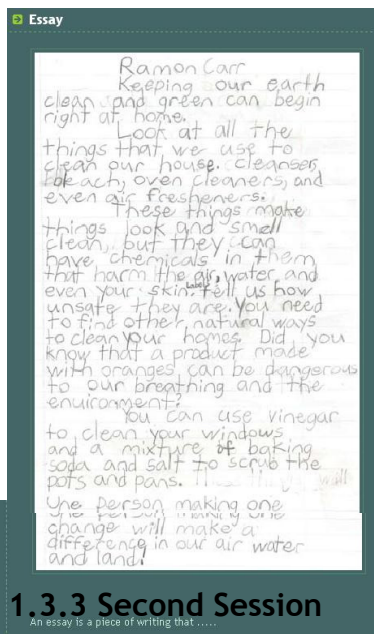 Essay
Ramon Carr
Keeping our earth
clean and green can begin
right at home.
Look at all the
things that we use to
clean our house. cleanser,
bleach, oven cleaners, and
even air fresheners.
These things make
things look and smell
clean, but they can
have chemicals in them
that harm the air, water and
even your skin. Labels tell us how
unsafe they are. You need
to find other, natural ways
to clean your homes. Did you
know that a product made
with oranges can be dangerous
to our breathing and the
enuironment?
You can use vinegar
to clean your windows
and a mixture of baking
soda and salt to scrub the
pots and pans.
One person making one
change will make a
difference in our air water
and land!
1.3.3 Second Session
An essay is a piece of writing that .....